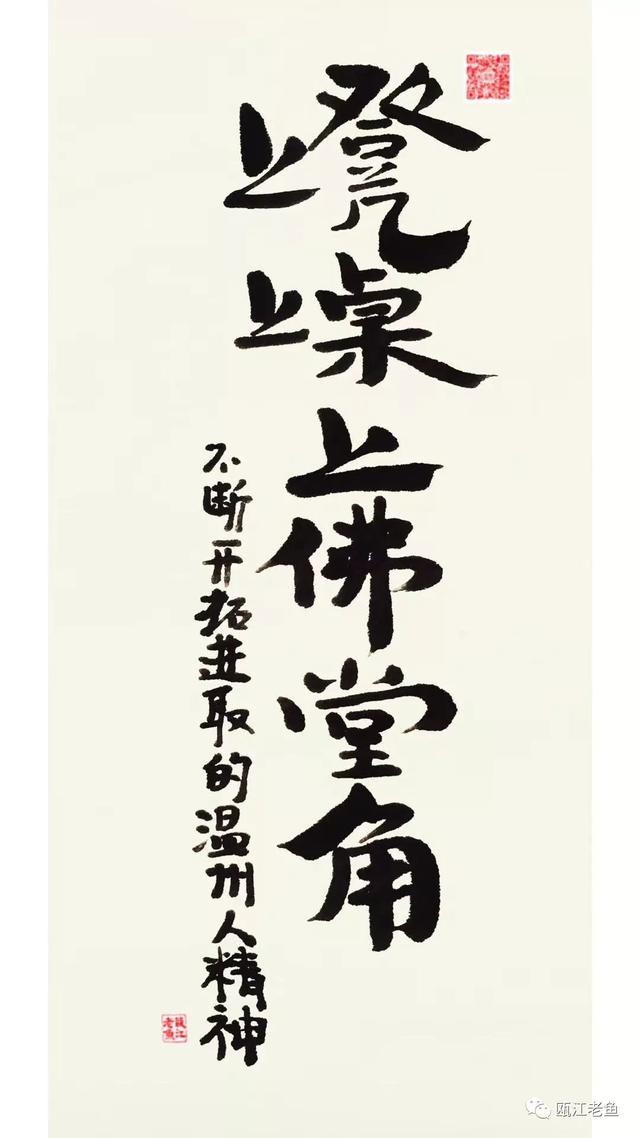 上凳上桌上佛堂角
不断开拓进取的温州人精神
瓯江老鱼
瓯江老鱼